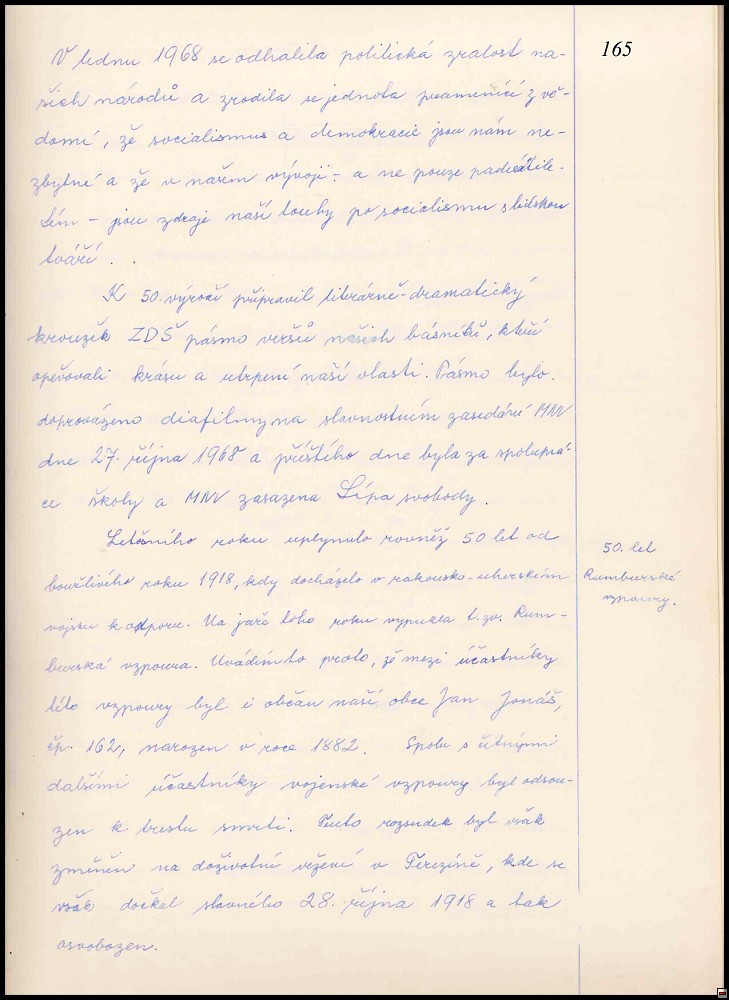 165
V lednu 1968 se odhalila politická zralost na-
šich národů a zrodila se jednota pramenící z vě-
domí, že socialismus a demokracie jsou nám ne-
zbytné a že v našem vývoji - a ne pouze padesátile-
tém - jsou zdroje naší touhy po socialismu s lidskou
tváří . .
K 50. výročí připravil literárně-dramatický
kroužek ZDŠ pásmo veršů našich básníků, kteří
opěvovali krásu a utrpení naší vlasti. Pásmo bylo
doprovázeno diafilmy na slavnostním zasedání MNV
dne 27. října 1968 a příštího dne byla za spoluprá-
ce školy a MNV zasazena Lípa svobody.
Letošního roku uplynulo rovněž 50 let od
bouřlivého roku 1918, kdy docházelo v rakousko-uherském
vojsku k odporu. Na jaře toho roku vypukla t.zv. Rum-
burská vzpoura. Uvádím to proto, že mezi účastníky
této vzpoury byl i občan naší obce Jan Jonáš,
čp. 162, narozen v roce 1882. Spolu s četnými
dalšími účastníky vojenské vzpoury byl odsou-
zen k trestu smrti. Tento rozsudek byl však
změněn na doživotní vězení v Terezíně, kde se
však dočkal slavného 28. října 1918 a tak
osvobozen.
50. let
Rumburské
vzpoury.